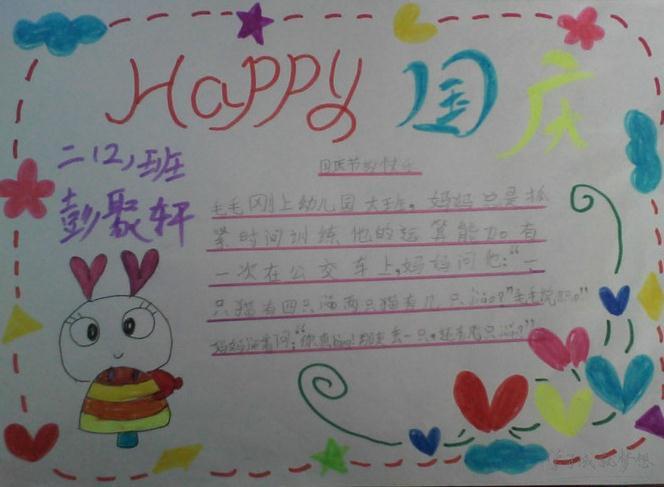 Happy 国庆
二(2)班
彭聚轩
国庆节的快乐
毛毛刚上幼儿园大班。妈妈总是抓
紧时间训练他的运算能力。有
一次在公交车上,妈妈问他:“一
只猫有四只脚两只猫有几只脚?”毛毛说:8只。”
妈妈问:“你真 一只,还有几只脚?”